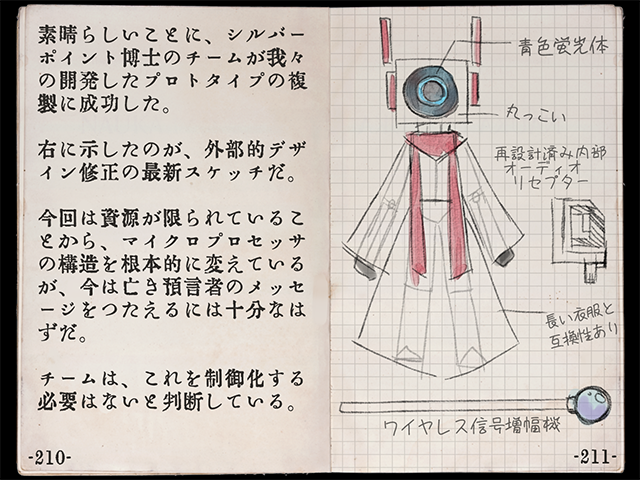 素晴らしいことに、シルバー
ポイント博士のチームが我々
の開発したプロトタイプの複
製に成功した。
右に示したのが、外部的デザ
イン修正の最新スケッチだ。
今回は資源が限られているこ
とから、マイクロプロセッサ
の構造を根本的に変えている
が、今は亡き預言者のメッセ
ージをつたえるには十分なは
ずだ。
チームは、これを制御化する
必要はないと判断している。
-210-
青色蛍光体
丸っこい
再設計済み内部
オーディオ
リセプター
長い衣服と
互換性あり
ワイヤレス信号増幅機
-211-